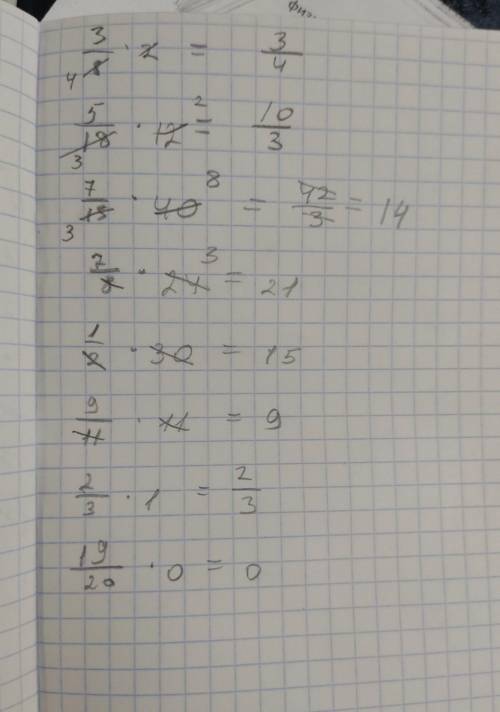 физ.
3/8 · 2 = 3/4
4
5/18 · 12 = 10/3
3 2
7/15 · 40 = 42/3 = 14
3 8
7/8 · 24 = 21
3
1/2 · 30 = 15
9/11 · 11 = 9
2/3 · 1 = 2/3
19/20 · 0 = 0